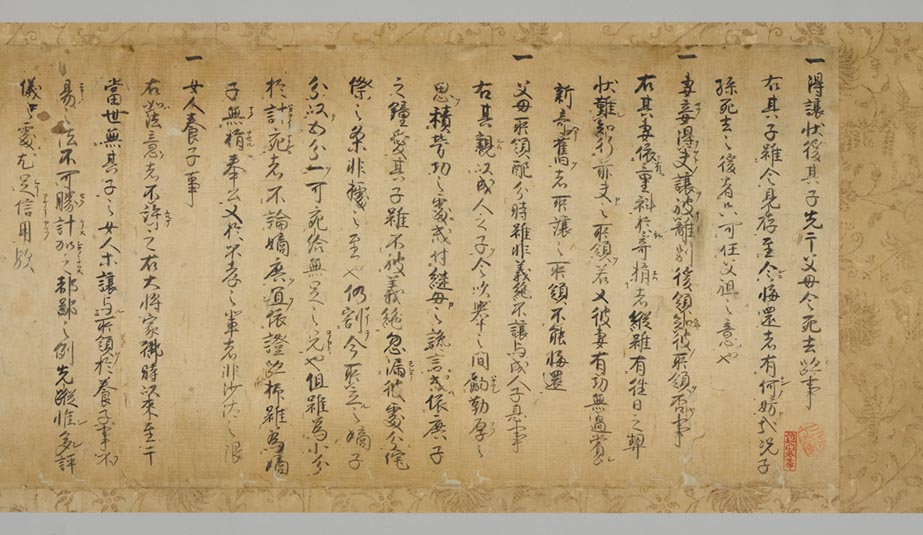 一得讓状後其子先于父母令死去跡事
右其子雖令見存至令悔還者有何妨哉況子
孫死去之後者只可任父祖之意也
一妻妾得夫讓被離別後領知彼所領否事
右其妻依重科於弃捐者縦雖有往日之契
状難知行前夫之所領若又彼妻有功無過賞
新弃舊者所讓之所領不能悔還
一父母所領配分時雖非義絶不讓与成人子息事
右其親以成人之子令吹挙之間勵勤厚之
思積労功之處或付継母之讒言或依庶子
之鍾愛其子雖不被義絶忽漏彼處分侘
傺之条非據之至也仍割今所立之嫡子
分以五分一可宛給無足之兄也但雖為小分
於計宛者不論嫡庶宜依證跡抑雖為嫡
子無指奉公又於不孝之輩者非沙汰之限
一女人養子事
右如法意者不許之右大将家御時以来至于
當世無其子之女人等讓与所領於養子事不
易之法不可勝計加之都鄙之例先蹤惟多評
儀之處尤足信用歟